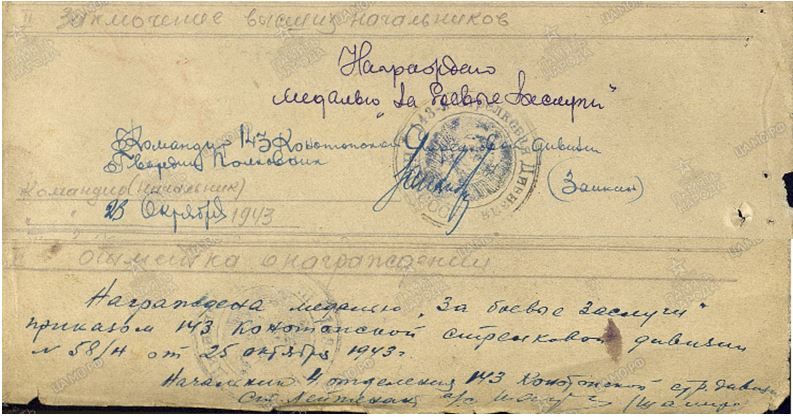 II Заключение высших начальников
Награждено
медалью "За боевые Заслуги"
Командир 143 Конотопской Стрелковой Дивизии
Гвардии Полковник
(Заикин)
Командир (начальник)
23 Октября 1943
Отметка о награждении
Награждена медалью "За боевые Заслуги"
приказом 143 Конотопской стрелковой дивизии
N 58/н от 25 октября 1943 г.
Начальник 4 отделения 143 Конотопской стр. дивизи
Ст. Лейтенант а/с